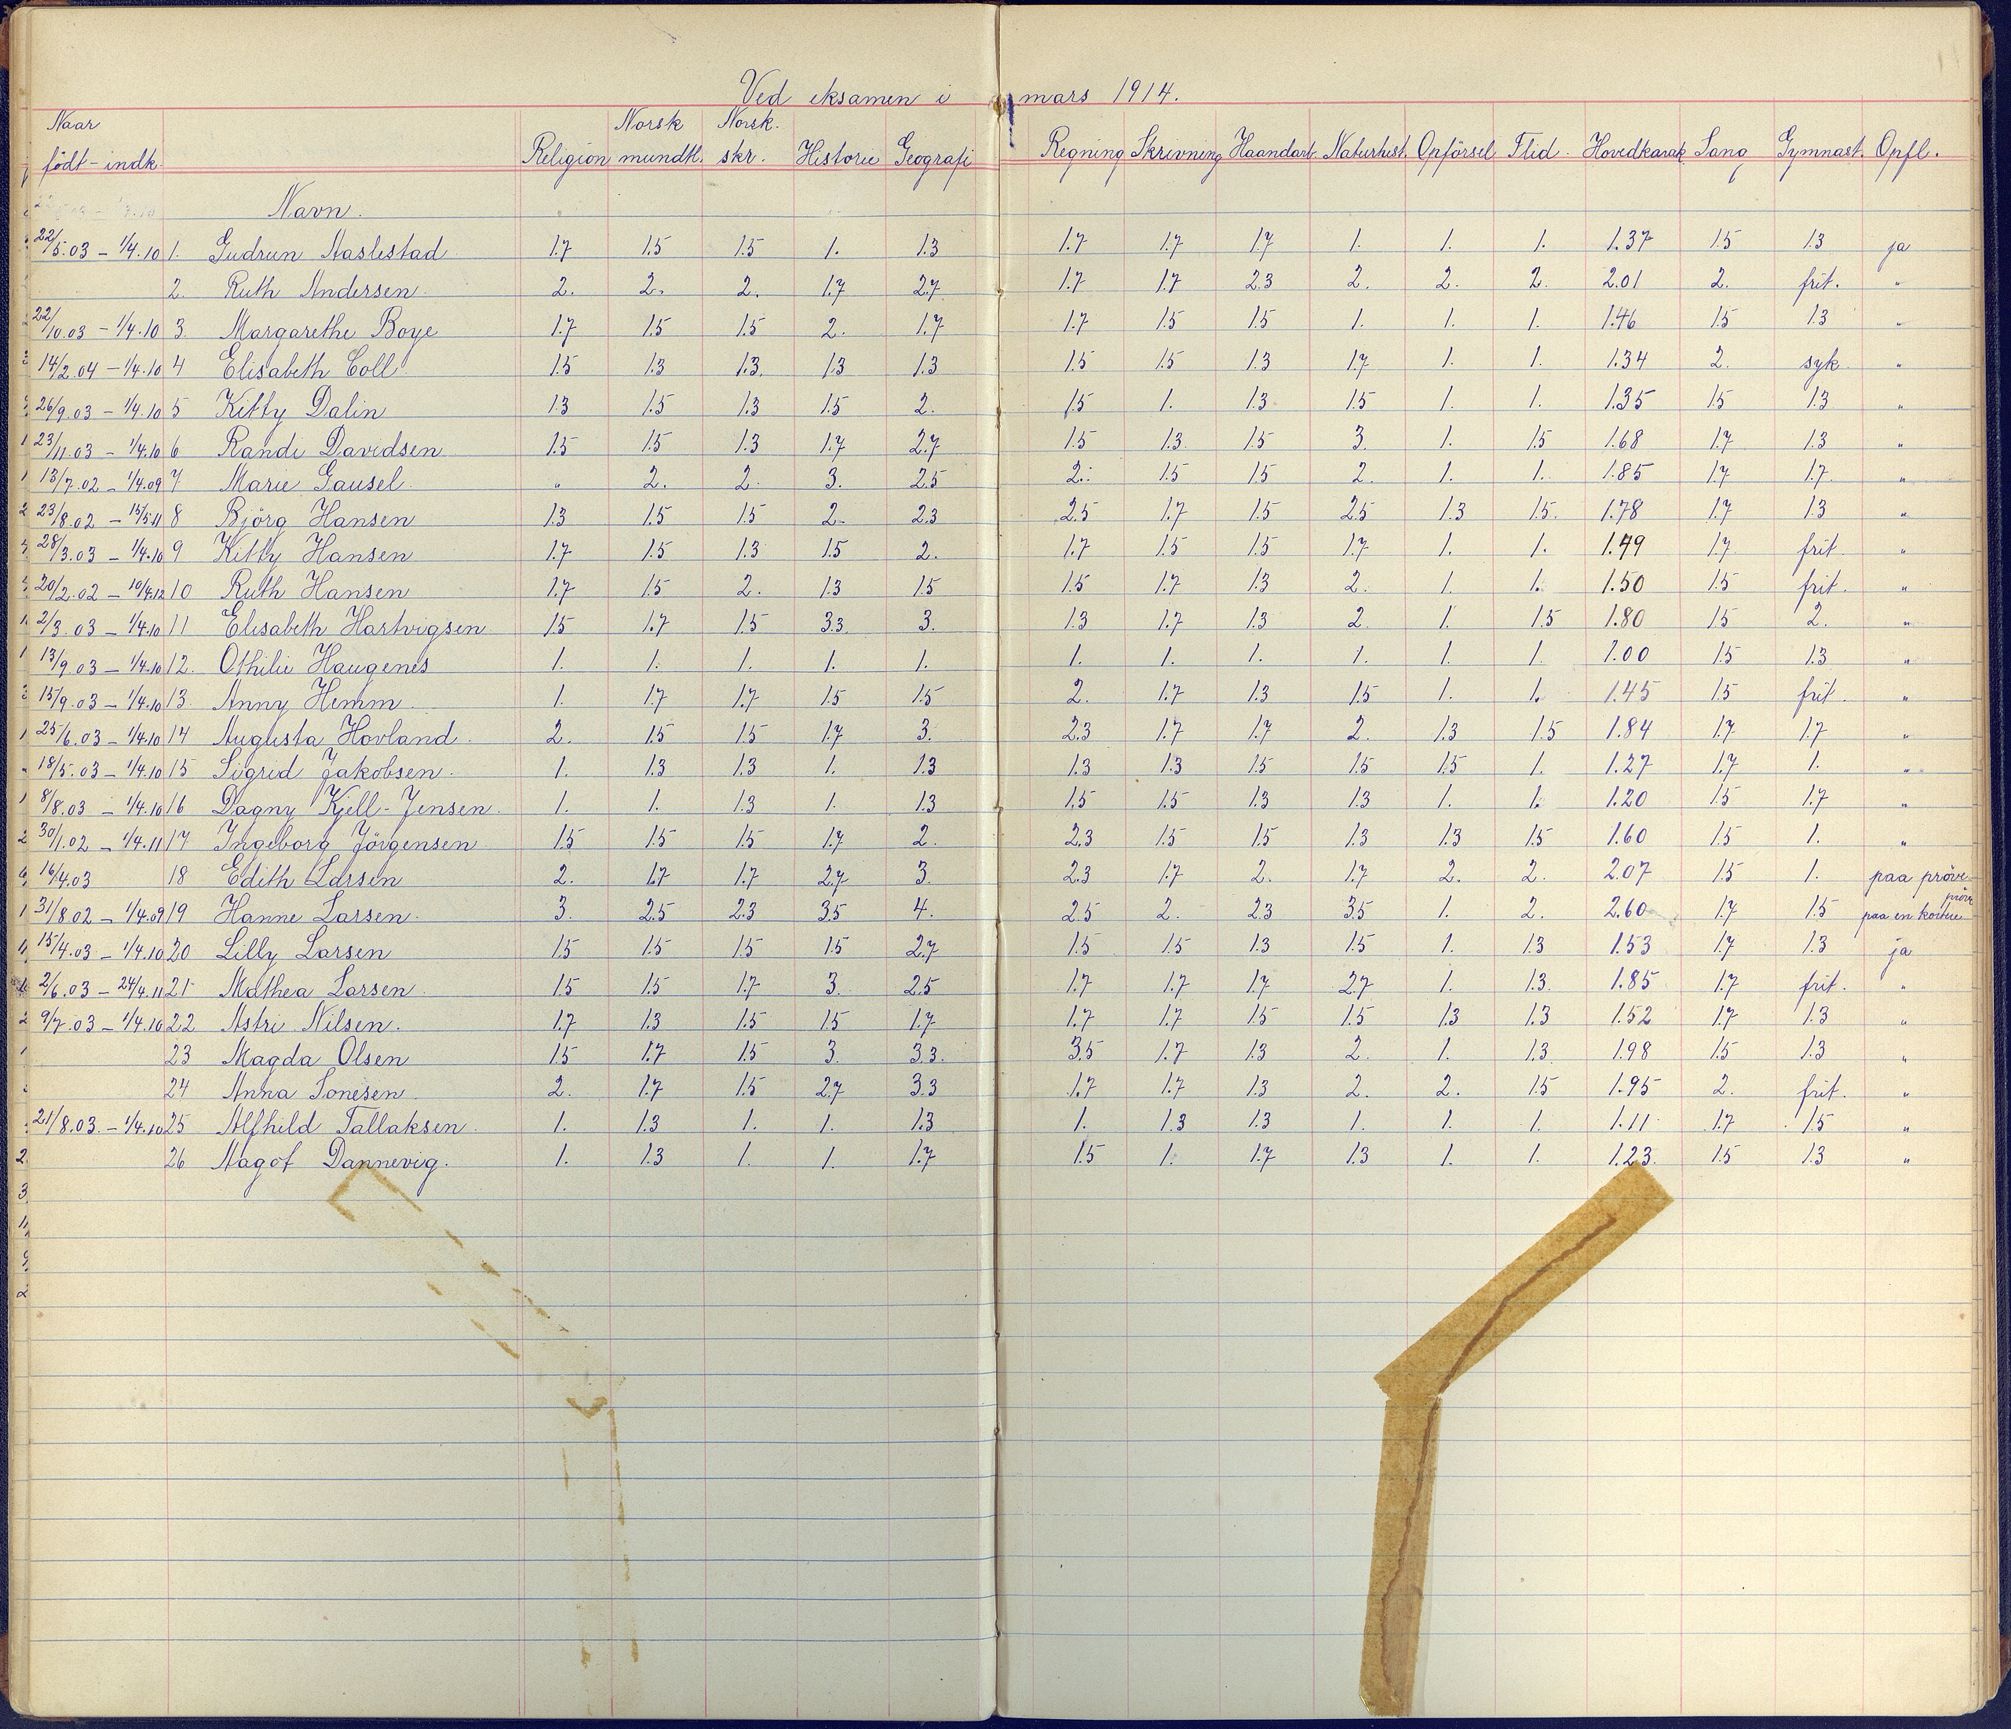 Ved eksamen i mars 1914.
Naar født - indk. Religion Norsk mundtl. Norsk. skr. Historie Geografi Regning Skrivning Haandarb. Naturhist. Opførsel Flid. Hovedkarak. Sang Gymnast. Opfl.
Navn.
22/5.03 - 1/4.10 1. Gudrun Aaslestad 1.7 1.5 1.5 1. 1.3 1.7 1.7 1.7 1. 1. 1. 1.37 1.5 1.3 ja
2. Ruth Andersen. 2. 2. 2. 1.7 2.7 1.7 1.7 2.3 2. 2. 2. 2.01 2. frit. "
22/10.03 - 1/4.10 3. Margarethe Boye 1.7 1.5 1.5 2. 1.7 1.7 1.5 1.5 1. 1. 1. 1.46 1.5 1.3 "
14/2.04 - 1/4.10 4 Elisabeth Coll 1.5 1.3 1.3. 1.3 1.3 1.5 1.5 1.3 1.7 1. 1. 1.34 2. syk "
26/9.03 - 1/4.10 5 Kitty Dalin 1.3 1.5 1.3 1.5 2. 1.5 1. 1.3 1.5 1. 1. 1.35 1.5 1.3 "
23/11.03 - 1/4.10 6 Randi Davidsen 1.5 1.5 1.3 1.7 2.7 1.5 1.3 1.5 3. 1. 1.5 1.68 1.7 1.3 "
13/7.02 - 1/4.09 7 Marie Gausel. " 2. 2. 3. 2.5 2. 1.5 1.5 2. 1. 1. 1.85 1.7 1.7. "
23/8.02 - 15/5.11 8 Bjørg Hansen 1.3 1.5 1.5 2. 2.3 2.5 1.7 1.5 2.5 1.3 1.5. 1.78 1.7 1.3 "
28/3.03 - 1/4.10 9 Kitty Hansen 1.7 1.5 1.3 1.5 2. 1.7 1.5 1.5 1.7 1. 1. 1.49 1.7 frit. "
20/2.02 - 10/4.12 10 Ruth Hansen 1.7 1.5 2. 1.3 1.5 1.5 1.7 1.3 2. 1. 1. 1.50 1.5 frit. "
2/3.03 - 1/4.10 11 Elisabeth Hartvigsen 1.5 1.7 1.5 3.3. 3. 1.3 1.7 1.3 2. 1. 1.5 1.80 1.5 2. "
13/9.03 - 1/4.10 12. Othilie Haugenes 1. 1. 1. 1. 1. 1. 1. 1. 1. 1. 1. 1.00 1.5 1.3 "
15/9.03 - 1/4.10 13. Anny Hemm. 1. 1.7 1.7 1.5 1.5 2. 1.7 1.3 1.5 1. 1. 1.45 1.5 frit. "
25/6.03 - 1/4.10 14 Augusta Hovland. 2. 1.5 1.5 1.7 3. 2.3 1.7 1.7 2. 1.3 1.5 1.84 1.7 1.7 "
18/5.03 - 1/4.10 15 Sigrid Jakobsen. 1. 1.3 1.3 1. 1.3 1.3 1.3 1.5 1.5 1.5 1. 1.27 1.7 1. "
8/8.03 - 1/4.10 16 Dagny Kjell-Jensen. 1. 1. 1.3 1. 1.3 1.5 1.5 1.3 1.3 1. 1. 1.20 1.5 1.7 "
30/1.02 - 1/4.11 17 Ingeborg Jørgensen 1.5 1.5 1.5 1.7 2. 2.3 1.5 1.5 1.3 1.3 1.5 1.60 1.5 1. "
16/4.03 18 Edith Larsen 2. 1.7 1.7 2.7 3. 2.3 1.7 2. 1.7 2. 2. 2.07 1.5 1. paa prøve
31/8.02 - 1/4.09 19 Hanne Larsen. 3. 2.5 2.3 3.5 4. 2.5 2. 2.3 3.5 1. 2. 2.60 1.7 1.5 paa en kortere prøve
15/4.03 - 1/4.10 20 Lilly Larsen 1.5 1.5 1.5 1.5 2.7 1.5 1.5 1.3 1.5 1. 1.3 1.53 1.7 1.3 ja
2/6.03 - 24/4.11 21 Mathea Larsen. 1.5 1.5 1.7 3. 2.5 1.7 1.7 1.7 2.7 1. 1.3. 1.85 1.7 frit. "
9/7.03 - 1/4.10 22 Astri Nilsen. 1.7 1.3 1.5 1.5 1.7 1.7 1.7 1.5 1.5 1.3 1.3 1.52 1.7 1.3 "
23 Magda Olsen 1.5 1.7 1.5 3. 3.3. 3.5 1.7 1.3 2. 1. 1.3 1.98 1.5 1.3 "
24 Anna Sonesen. 2. 1.7 1.5 2.7 3.3 1.7 1.7 1.3 2. 2. 1.5 1.95 2. frit. "
21/8.03. - 1/4.10 25 Alfhild Tallaksen. 1. 1.3 1. 1. 1.3 1. 1.3 1.3 1. 1. 1. 1.11 1.7 1.5 "
26 Aagot Dannevig. 1. 1.3 1. 1. 1.7 1.5 1. 1.7 1.3 1. 1. 1.23. 1.5 1.3 "